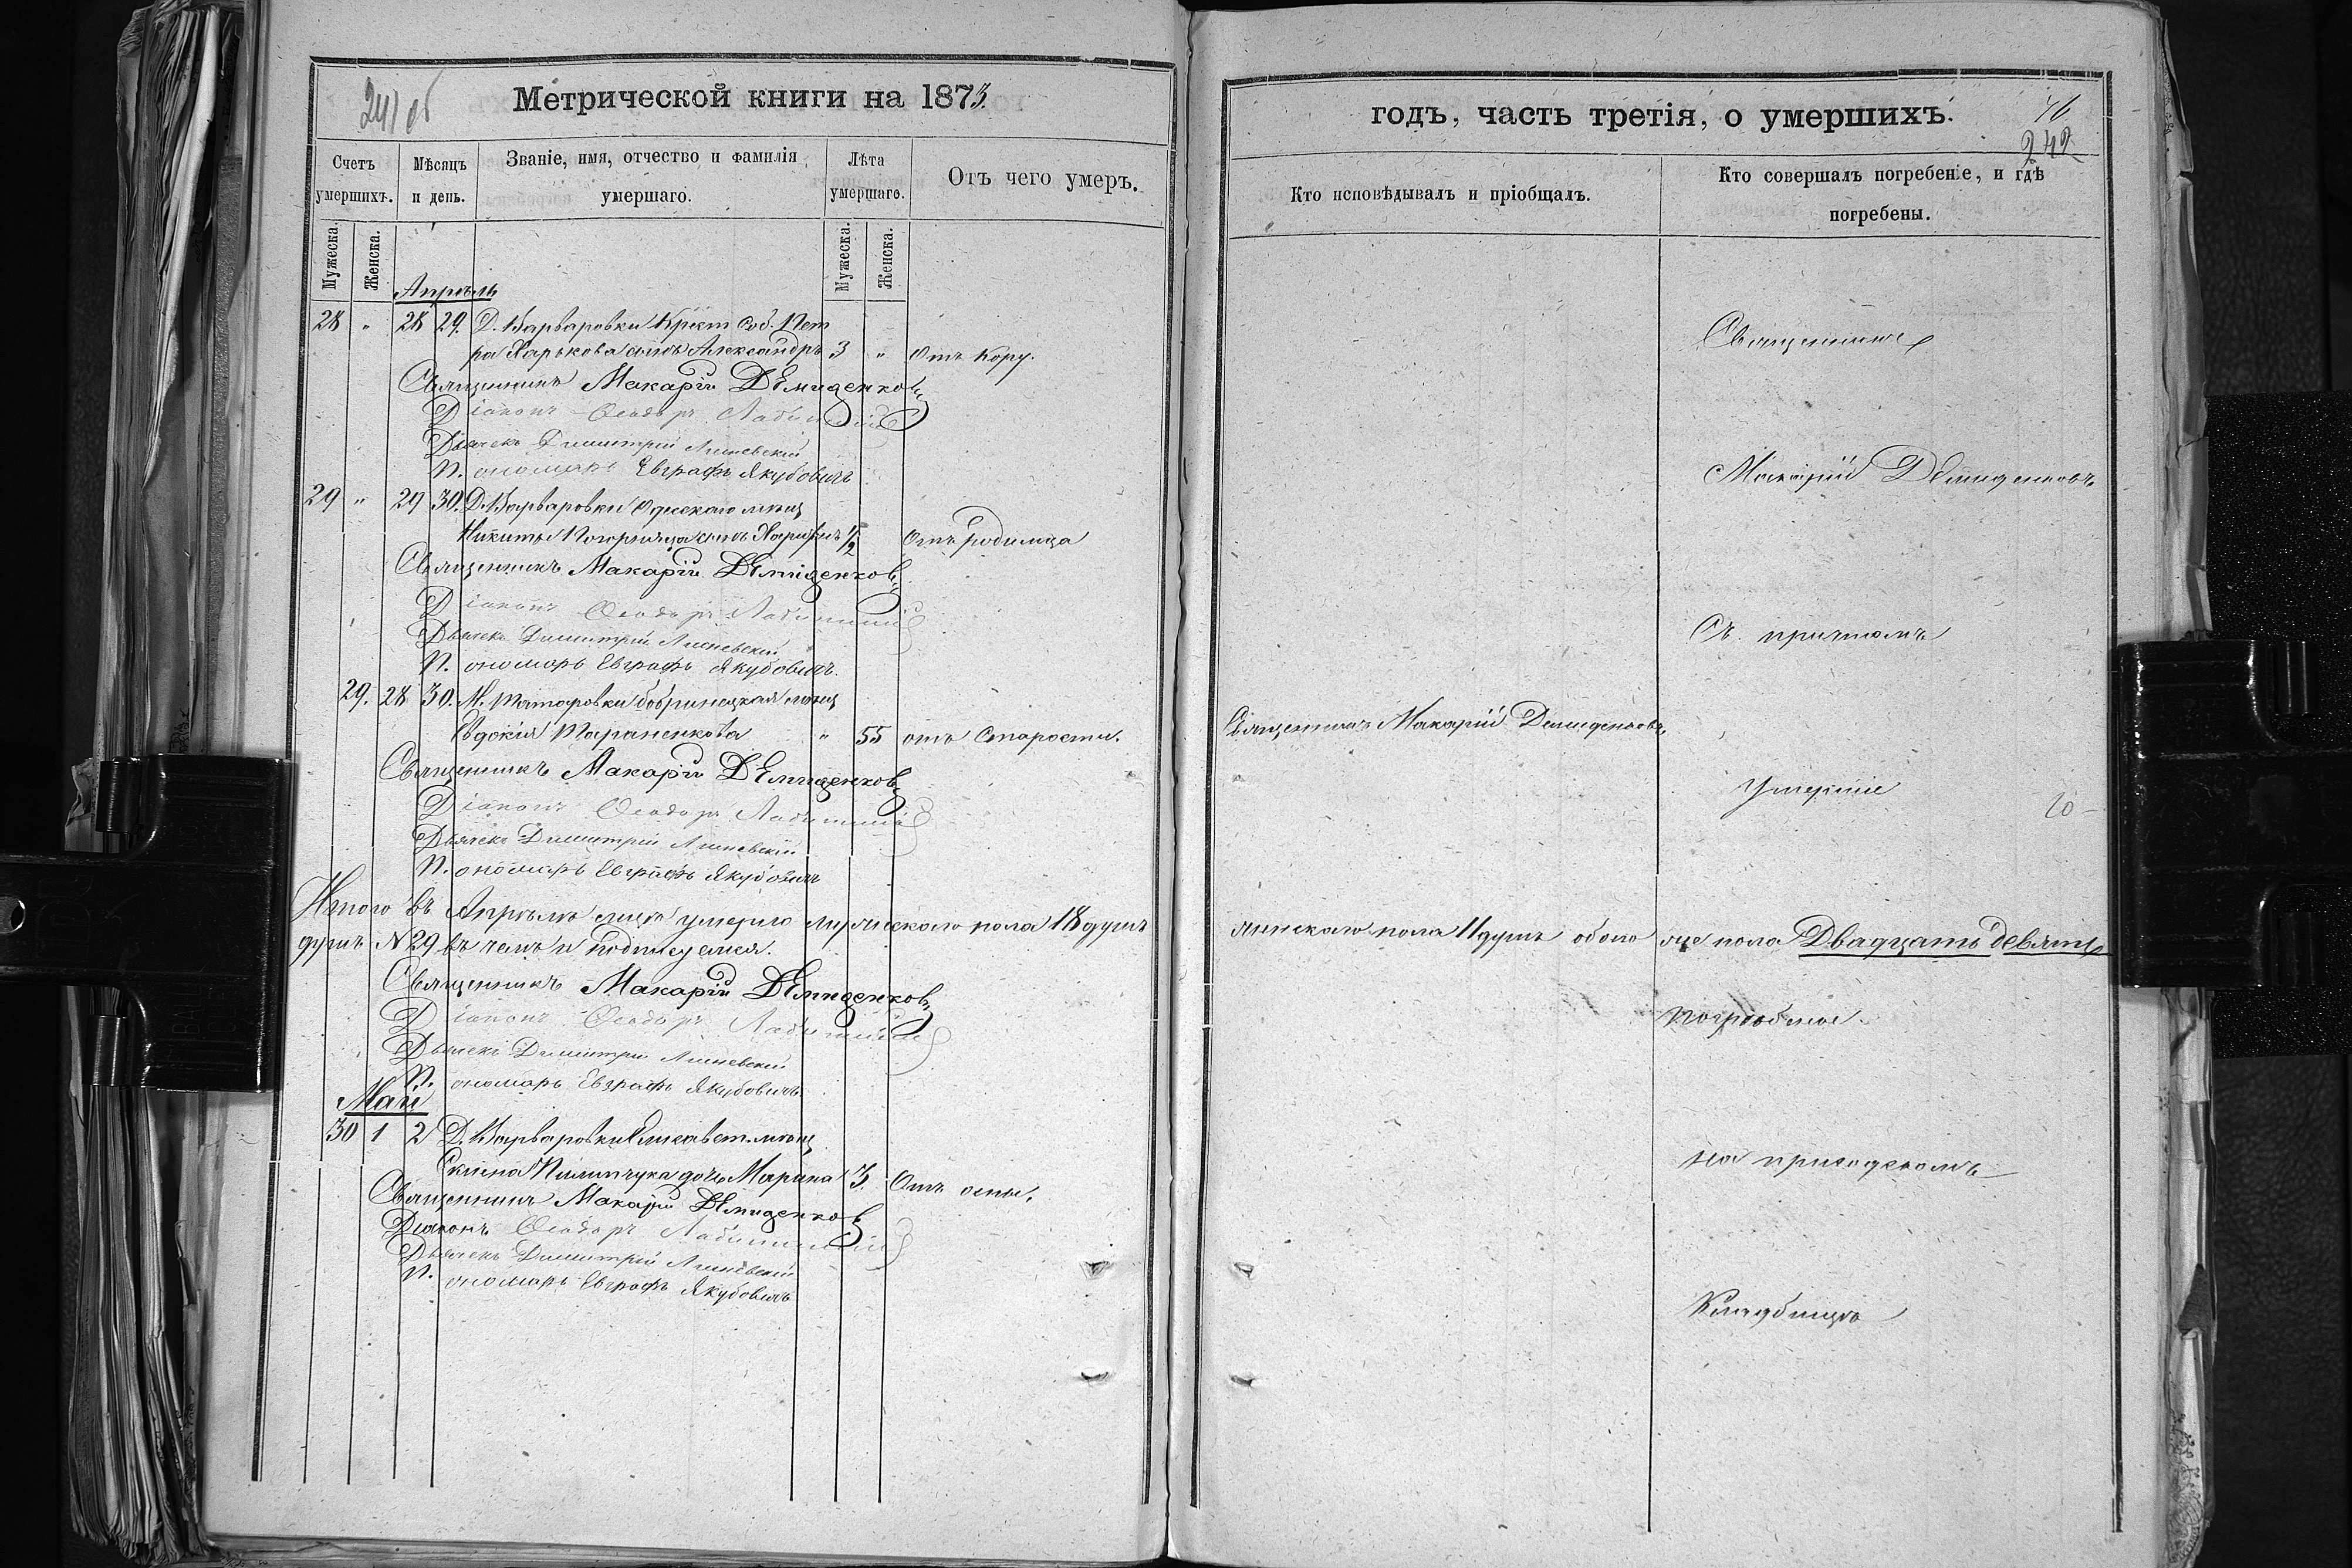 241 об
Метрической книги на 1873
Счетъ умершихъ.
Мѣсяцъ и день.
Званіе, имя, отчество и фамилія умершаго.
Лѣта умершаго.
Отъ чего умеръ.
Мужеска. Женска.
Мужеска. Женска.
Апрѣль
28 " 28 29. Д. Варваровки Крест. Соб. Пет
ра Харькова сынъ Александръ 3 " Отъ Кору.
Священникъ Макарій Демиденковъ
Діаконъ Ѳеодоръ
Дьячекъ Димитрій Лишевскій
Пономарь Евграфъ Якубовичъ
29 " 29 30. Д. Варваровки Одескаго мѣщ
Никиты сынъ 1/2 Отъ родимца
Священникъ Макарій Демиденковъ
Діаконъ Ѳеодоръ
Дьячекъ Димитрій Лишевскій
Пономарь Евграфъ Якубовичъ
29. 28 30. М. бобринецкая мѣщ
Евдокія Тараненкова " 55 отъ Старости. Священникъ Макарій Демиденковъ
Священникъ Макарій Демиденковъ
Діаконъ Ѳеодоръ
Дьячекъ Димитрій Лишевскій
Пономарь Евграфъ Якубовичъ
Итого въ Апрѣлѣ мцѣ умерло мужескаго пола 18 душъ
женскаго пола 11 душъ обоего же пола Двадцать девять
душъ № 29 въ чемъ и Подписуемся.
Священникъ Макарій Демиденковъ
Діаконъ Ѳеодоръ
Дьячекъ Димитрій Лишевскій
Пономарь Евграфъ Якубовичъ
Май
30 1 2 Д. Варваровки Елисавет. мѣщ
Пилипчука дочь Марина 3. Отъ оспы.
Священникъ Макарій Демиденковъ
Діаконъ Ѳеодоръ
Дьячекъ Димитрій Лишевскій
Пономарь Евграфъ Якубовичъ
годъ, часть третія, о умершихъ.
242
Кто исповѣдывалъ и пріобщалъ.
Кто совершалъ погребеніе, и гдѣ погребены.
Священникъ
Макарій Демиденковъ
Съ причтомъ
Умершіе
погребены
на приходскомъ
Кладбищѣ